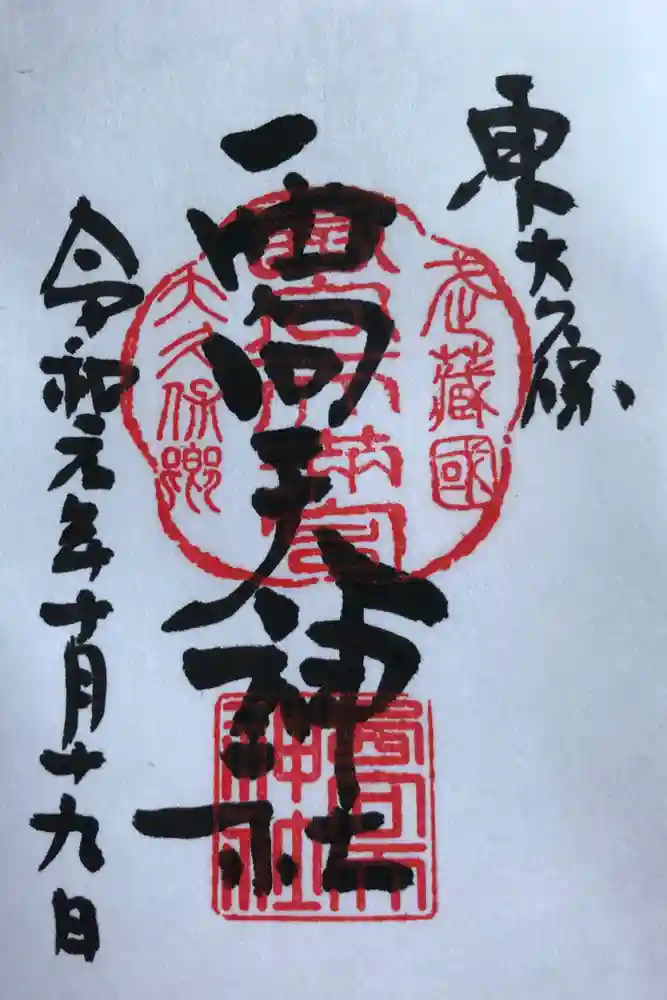 東大久保
西向天神社
令和元年十月十九日
武藏國
大久保郷
西向天
神社